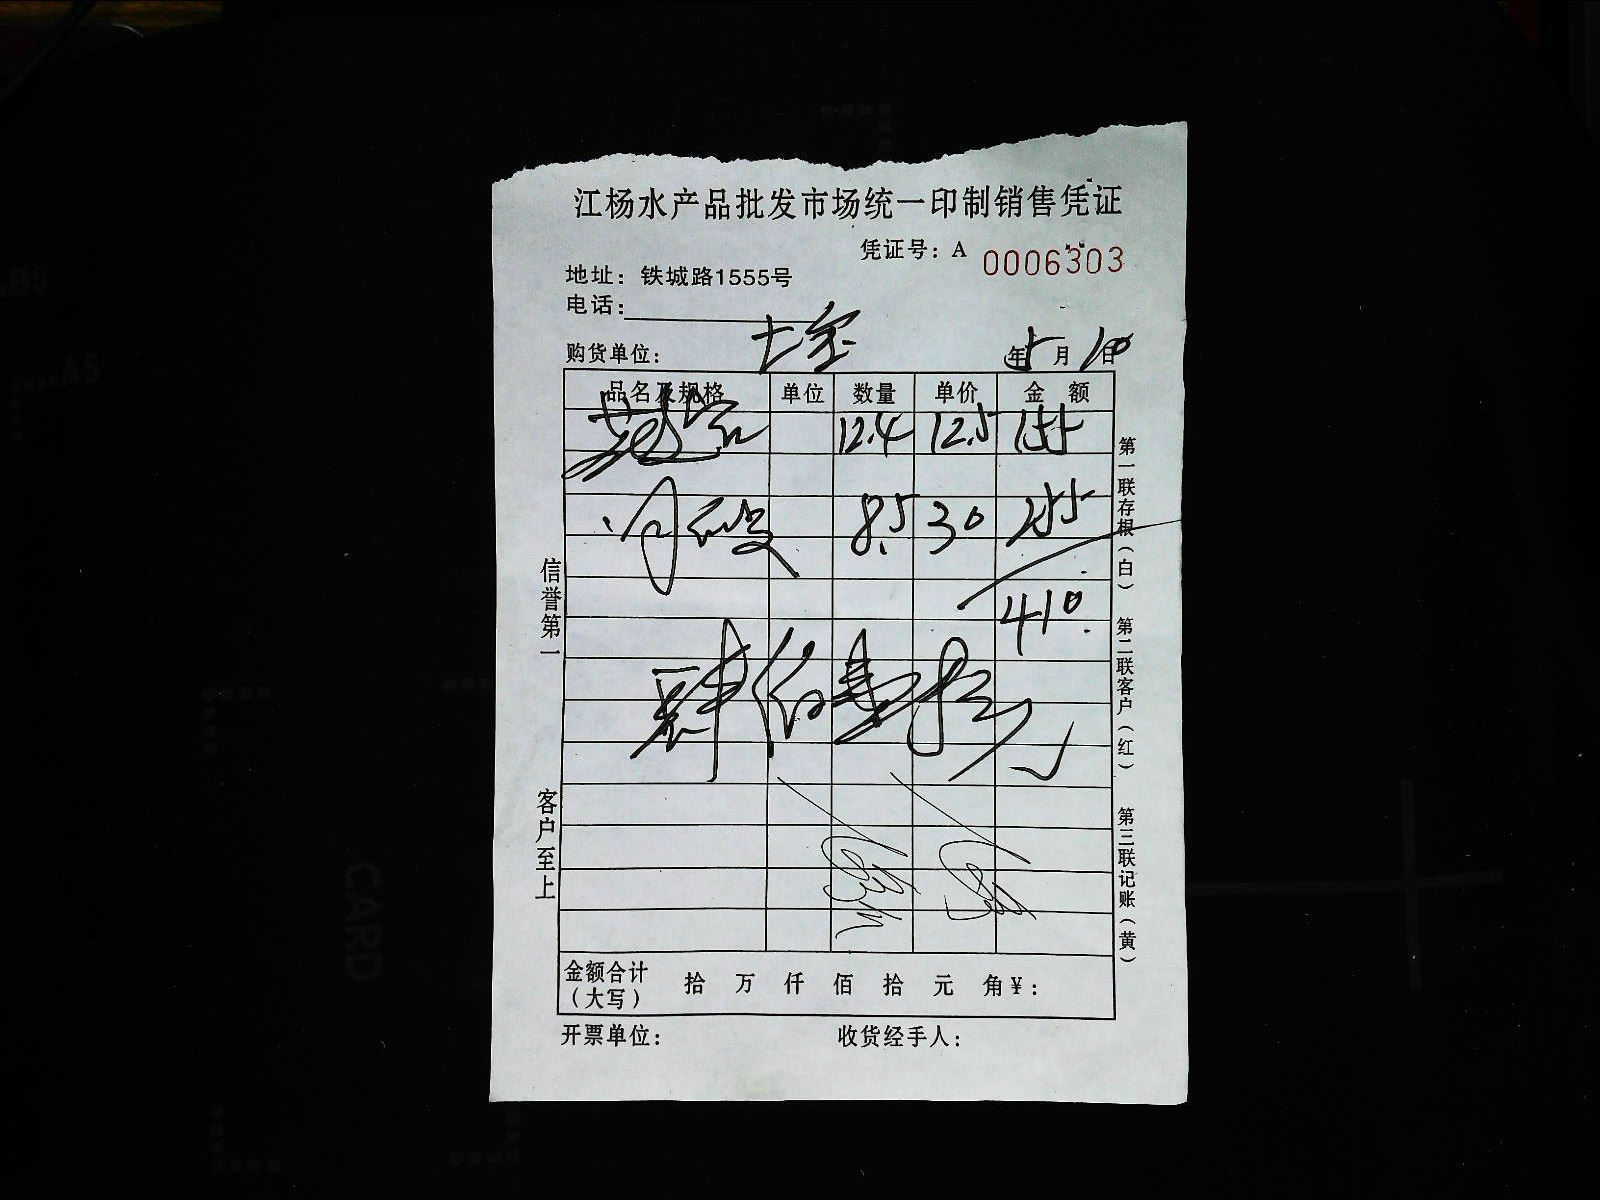 江杨水产品批发市场统一印制销售凭证
凭证号：A 0006303
地址：铁城路1555号
电话：
购货单位：七宝 年5月10日
品名及规格 单位 数量 单价 金 额
12.4 12.5 155
8.5 30 255
410
肆佰壹拾元
金额合计（大写） 拾 万 仟 佰 拾 元 角¥：
开票单位： 收货经手人：
信誉第一
客户至上
第一联存根（白） 第二联客户（红） 第三联记账（黄）